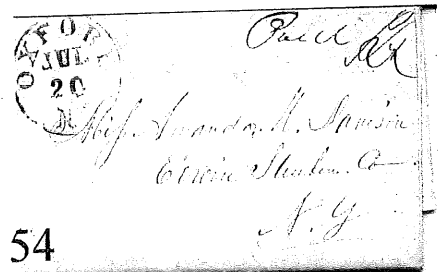 OXFORD
JUL
20
Paid
Miss Amanda M. Samson
Erwin Steuben Co
N. Y.
54